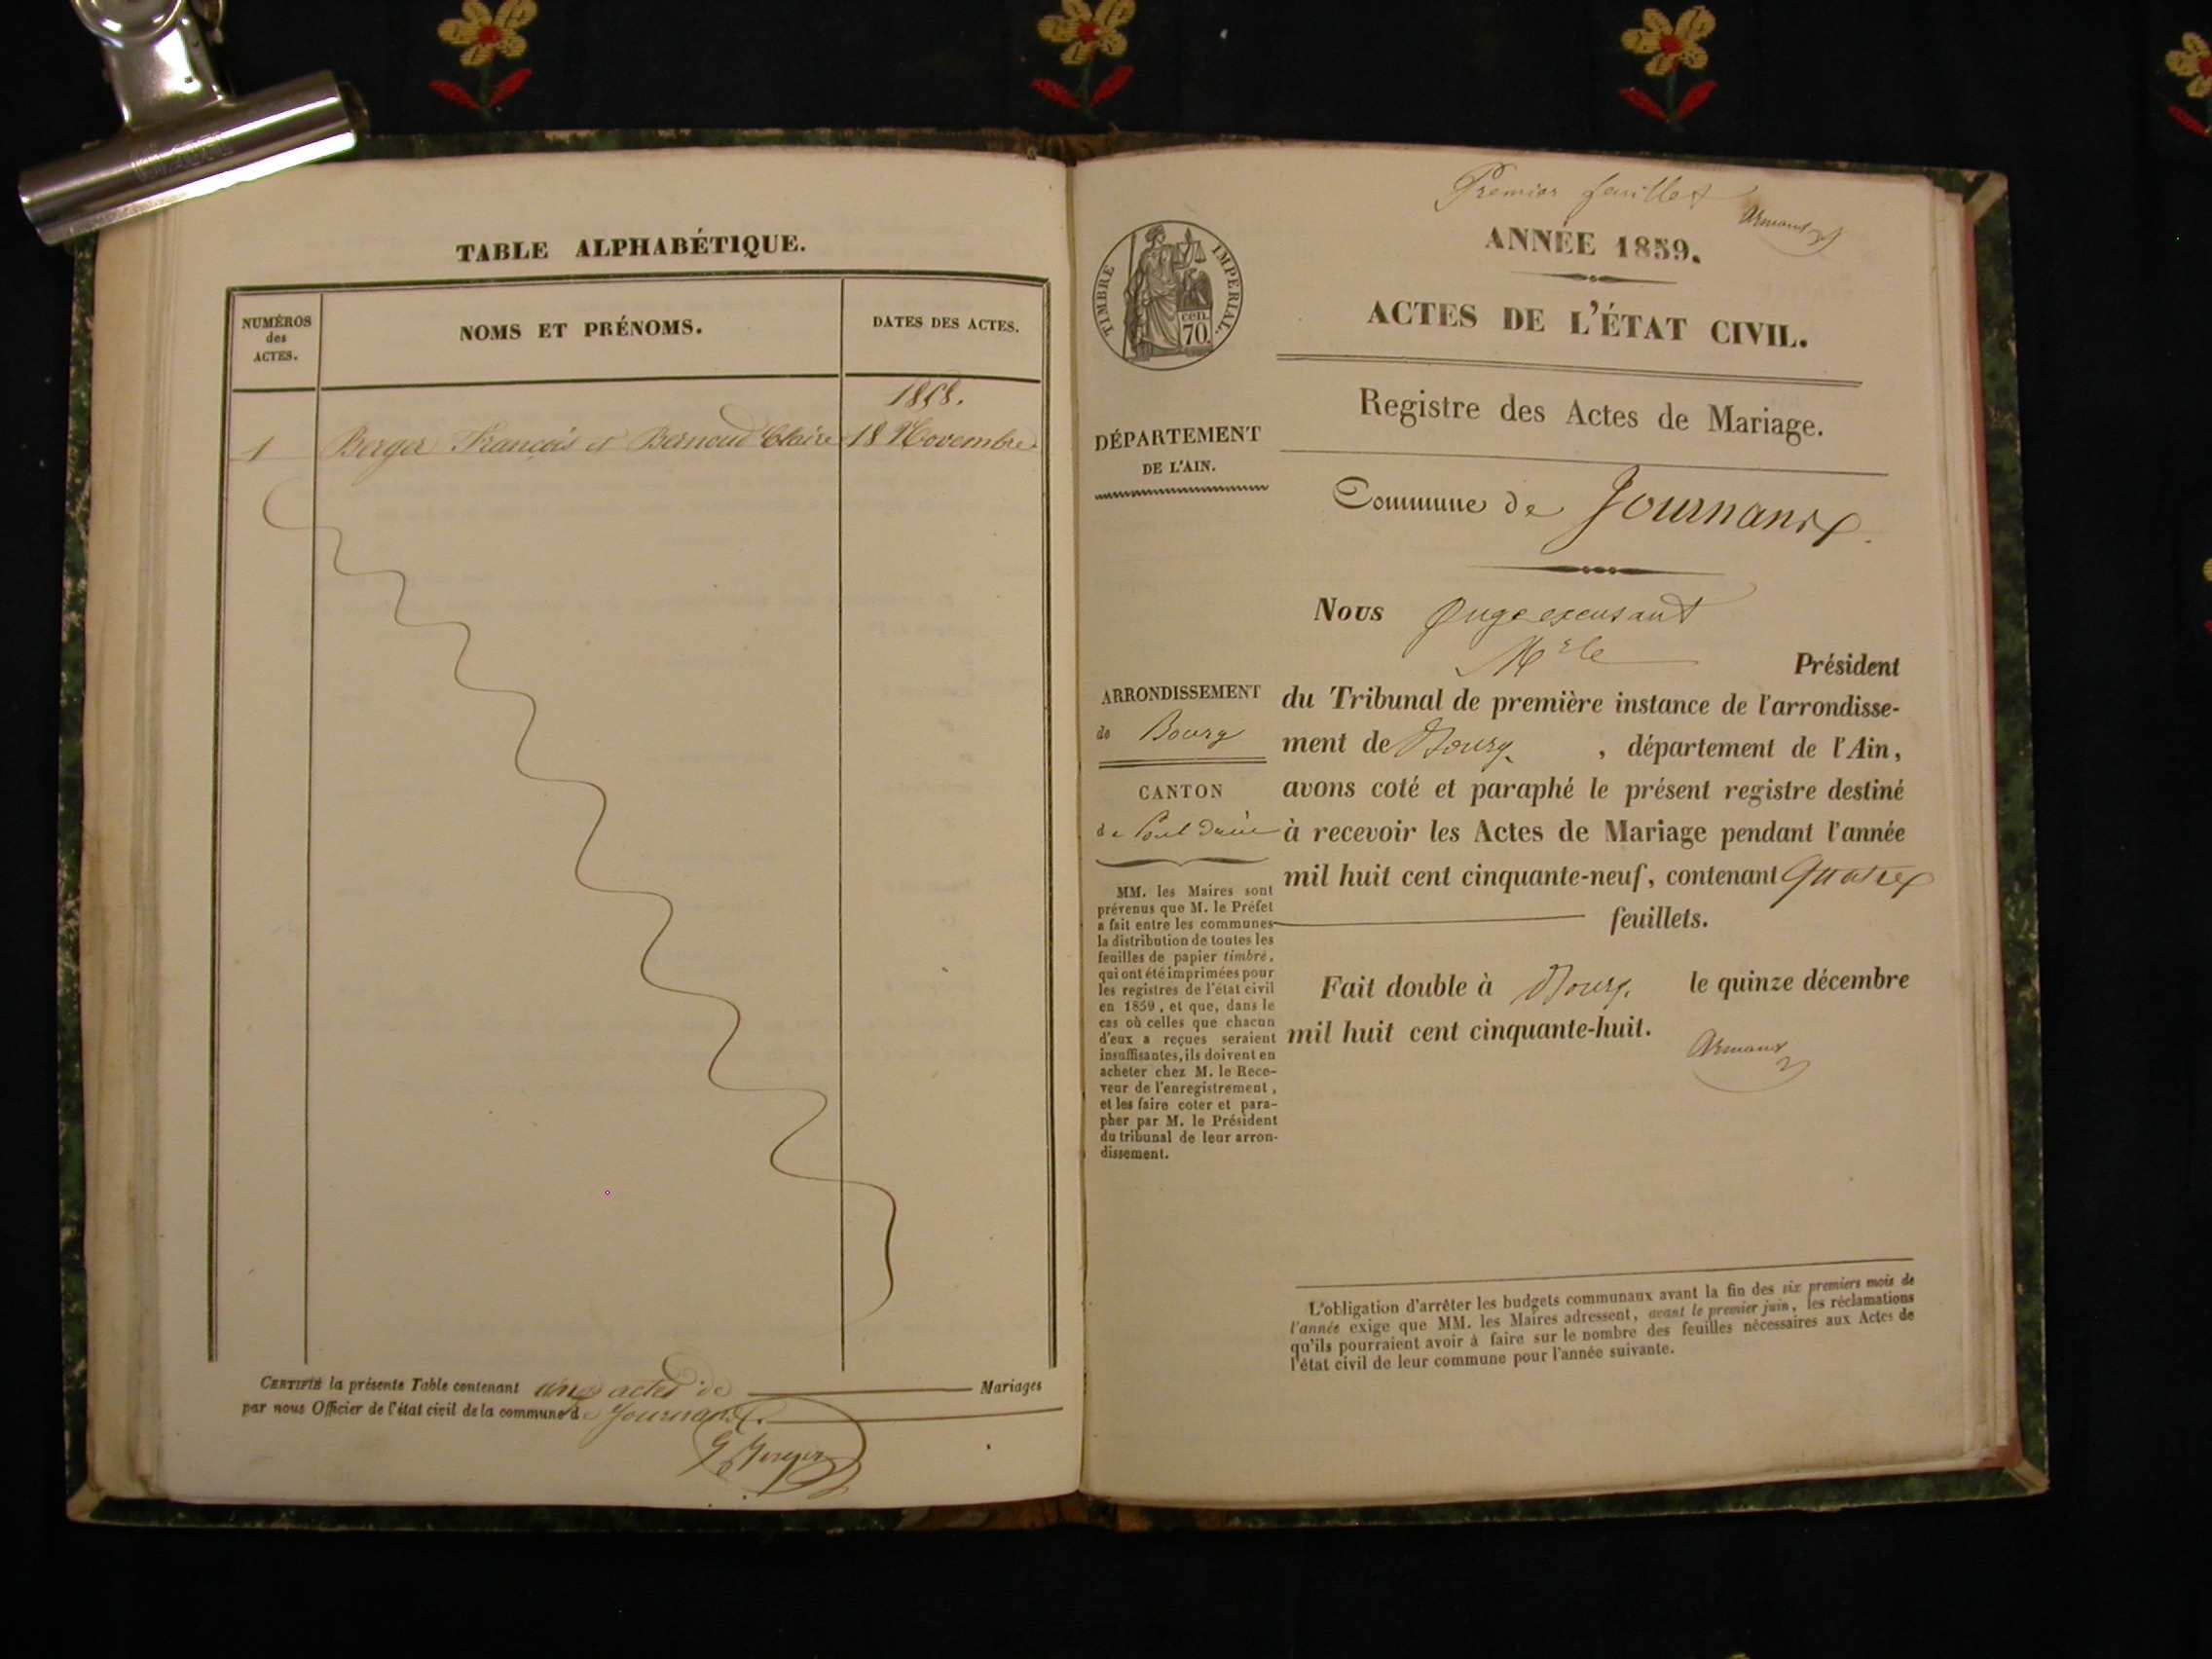 TABLE ALPHABÉTIQUE.
NUMÉROS
des
ACTES.
NOMS ET PRÉNOMS.
DATES DES ACTES.
1858.
1 Berger François et Bernoud Claire 18 Novembre
CERTIFIÉ la présente Table contenant actes de Mariages
par nous Officier de l'état civil de la commune de Journans.
Premier feuillet
Armand
ANNÉE 1859.
TIMBRE IMPÉRIAL.
cen.
70.
ACTES DE L'ÉTAT CIVIL.
Registre des Actes de Mariage.
DÉPARTEMENT
DE L'AIN.
Commune de Journans.
Nous
Président
ARRONDISSEMENT
de Bourg
CANTON
de Pont d'ain
MM. les Maires sont
prévenus que M. le Préfet
a fait entre les communes
la distribution de toutes les
feuilles de papier timbré,
qui ont été imprimées pour
les registres de l'état civil
en 1859, et que, dans le
cas où celles que chacun
d'eux a reçues seraient
insuffisantes, ils doivent en
acheter chez M. le Rece-
veur de l'enregistrement,
et les faire coter et para-
pher par M. le Président
du tribunal de leur arron-
dissement.
du Tribunal de première instance de l'arrondisse-
ment de Bourg, département de l'Ain,
avons coté et paraphé le présent registre destiné
à recevoir les Actes de Mariage pendant l'année
mil huit cent cinquante-neuf, contenant Quatre
feuillets.
Fait double à Bourg, le quinze décembre
mil huit cent cinquante-huit.
Armand
L'obligation d'arrêter les budgets communaux avant la fin des six premiers mois de
l'année exige que MM. les Maires adressent, avant le premier juin, les réclamations
qu'ils pourraient avoir à faire sur le nombre des feuilles nécessaires aux Actes de
l'état civil de leur commune pour l'année suivante.